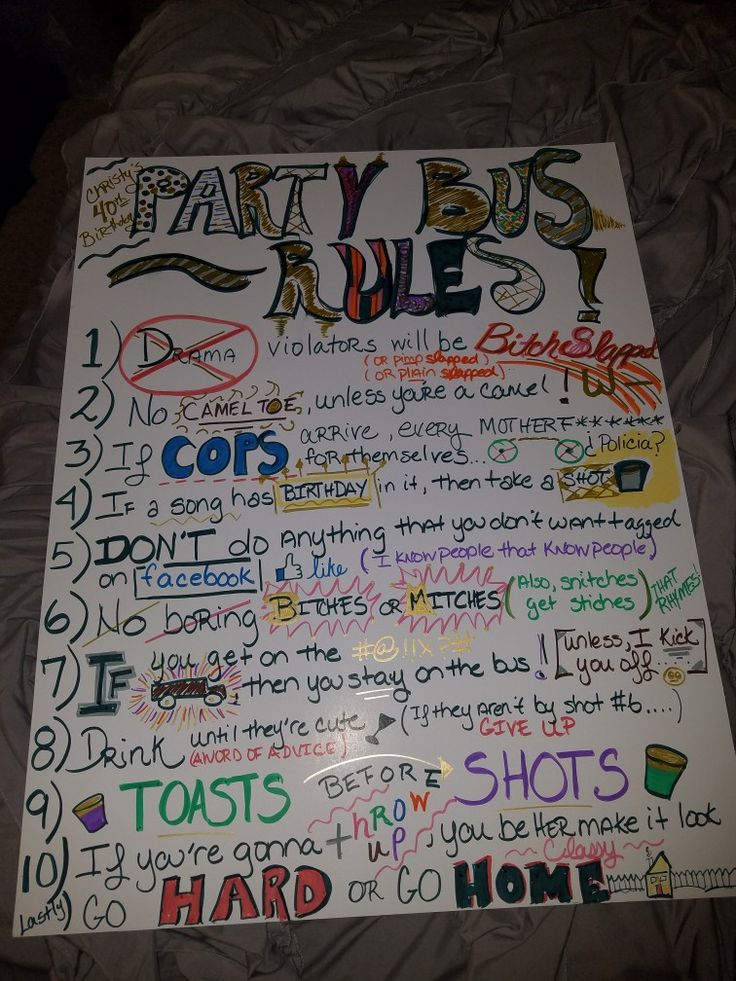 Christy's
40th
Birthday
PARTY BUS
RULES!
1) DRAMA violators will be Bitch Slapped
(OR pimp slapped)
(OR plain slapped)
2) No CAMEL TOE, unless you're a camel!
3) If COPS arrive, every MOTHERF******
for themselves... ¿Policia?
4) IF a song has BIRTHDAY in it, then take a SHOT
5) DON'T do Anything that you don't want tagged
on facebook like (I know people that know people)
6) No boring BITCHES or MITCHES (Also, snitches
get stiches) THAT RHYMES!
7) IF you get on the #@!!x?#
, then you stay on the bus! [unless, I Kick
you off...]
8) Drink until they're cute (If they aren't by shot #6....)
(A WORD OF ADVICE) GIVE UP
9) TOASTS BEFORE SHOTS
10) If you're gonna thROW uP, you beHER make it look
Classy
Lastly) GO HARD OR GO HOME